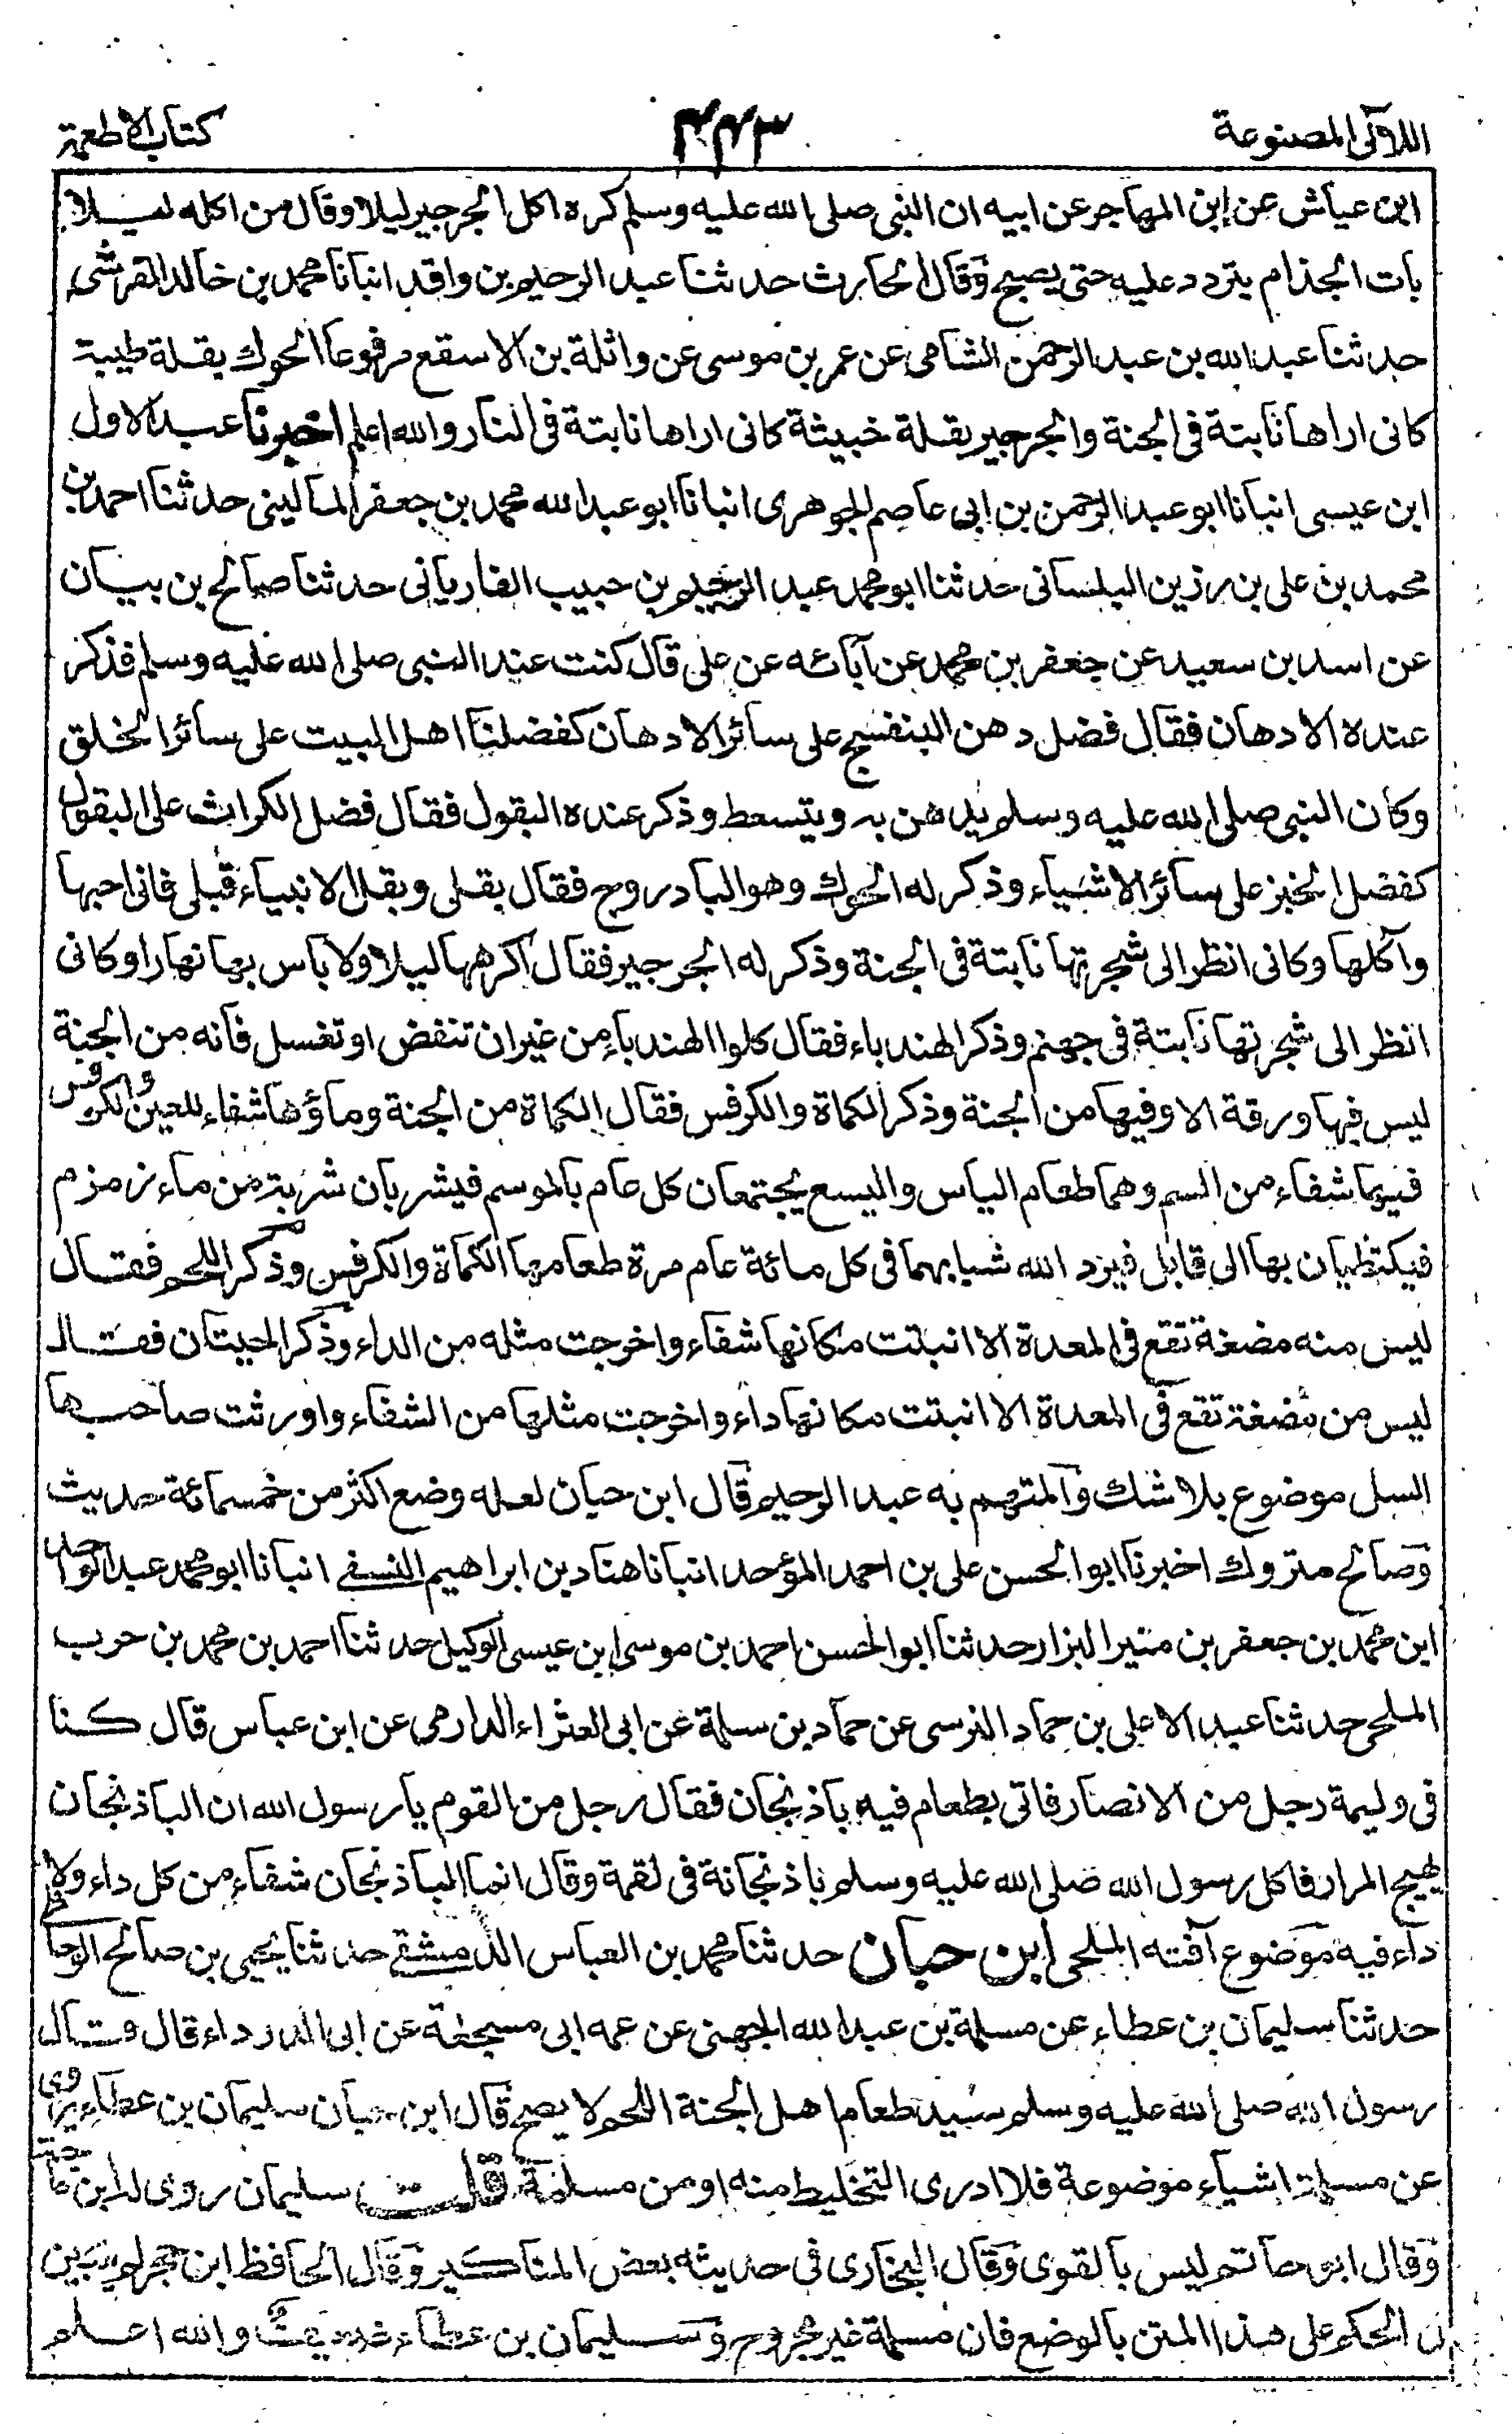 اللآلى المصنوعة ٣٤٣ كتاب الاطعمة
ابن عياش عن ابن المهاجر عن ابيه ان النبى صلى الله عليه وسلم كره اكل الجرجير ليلا وقال من اكله ليلا
بات الجذام يتردد عليه حتى يصبح وقال الحارث حدثنا عبد الرحيم بن واقد انبانا محمد بن خالد القرشى
حدثنا عبد الله بن عبد الرحمن الشامى عن عمر بن موسى عن واثلة بن الاسقع مرفوعا الحوك بقلة طيبة
كانى اراها نابتة فى الجنة والجرجير بقلة خبيثة كانى اراها نابتة فى النار والله اعلم اخبرنا عبد الاول
ابن عيسى انبانا ابو عبد الرحمن بن ابى عاصم الجوهرى انبانا ابو عبد الله محمد بن جعفر الماليني حدثنا احمد بن
محمد بن على بن رزين البلسانى حدثنا ابو محمد عبد الرحيم بن حبيب الفاريانى حدثنا صالح بن بيان
عن اسد بن سعيد عن جعفر بن محمد عن آبائه عن على قال كنت عند النبى صلى الله عليه وسلم فذكر
عنده الادهان فقال فضل دهن البنفسج على سائر الادهان كفضلنا اهل البيت على سائر الخلق
وكان النبى صلى الله عليه وسلم يدهن به ويتسعط وذكر عنده البقول فقال فضل الكراث على البقول
كفضل الخبز على سائر الاشياء وذكر له الحوك وهو البادروج فقال بقلى وبقل الانبياء قبلى فانى احبها
وآكلها وكانى انظر الى شجرتها نابتة فى الجنة وذكر له الجرجير فقال اكرهها ليلا ولا باس بها نهارا وكانى
انظر الى شجرتها نابتة فى جهنم وذكر الهندباء فقال كلوا الهندباء من غير ان تنفض او تغسل فانه من الجنة
ليس فيها ورقة الا وفيها من الجنة وذكر الكماة والكرفس فقال الكماة من الجنة وماؤها شفاء للعين والكرفس
فيهما شفاء من السم وهما طعام الياس واليسع يجتمعان كل عام بالموسم فيشربان شربة من ماء زمزم
فيكتظيان بها الى قابل فيزد الله شبابهما فى كل مائة عام مرة طعامهما الكماة والكرفس وذكر اللحم فقال
ليس منه مضغة تقع فى المعدة الا انبتت مكانها شفاء واخرجت مثله من الداء وذكر الحيتان فقال
ليس من مضغة تقع فى المعدة الا انبتت مكانها داء واخرجت مثلها من الشفاء واورثت صاحبها
السل موضوع بلا شك والمتهم به عبد الرحيم قال ابن حبان لعله وضع اكثر من خمسمائة حديث
وصالح متروك اخبرنا ابو الحسن على بن احمد الموحد انبانا هناد بن ابراهيم النسفى انبانا ابو محمد عبد الواحد
ابن محمد بن جعفر بن متير البزار حدثنا ابو الحسن احمد بن موسى ابن عيسى الوكيل حدثنا احمد بن محمد بن حرب
الملحى حدثنا عبد الاعلى بن حماد النرسى عن حماد بن سلمة عن ابى العشراء الدارمى عن ابن عباس قال كنا
فى وليمة رجل من الانصار فاتى بطعام فيه باذنجان فقال رجل من القوم يا رسول الله ان الباذنجان
يهيج المرار فاكل رسول الله صلى الله عليه وسلم باذنجانة فى لقمة وقال انما الباذنجان شفاء من كل داء ولا
داء فيه موضوع آفته الملحى ابن حبان حدثنا محمد بن العباس الدمشقى حدثنا يحيى بن صالح الوحاظى
حدثنا سليمان بن عطاء عن مسلمة بن عبد الله الجهنى عن عمه ابى مسجعة عن ابى الدرداء قال قال
رسول الله صلى الله عليه وسلم سيد طعام اهل الجنة اللحم لا يصح قال ابن حبان سليمان بن عطاء يروى
عن مسلمة اشياء موضوعة فلا ادرى التخليط منه او من مسلمة قلت سليمان روى له ابن ماجة
وقال ابو حاتم ليس بالقوى وقال البخارى فى حديثه بعض المناكير وقال الحافظ ابن حجر لم يتبين
لى الحكم على هذا المتن بالوضع فان مسلمة غير مجروح وسليمان بن عطاء ضعيف والله اعلم